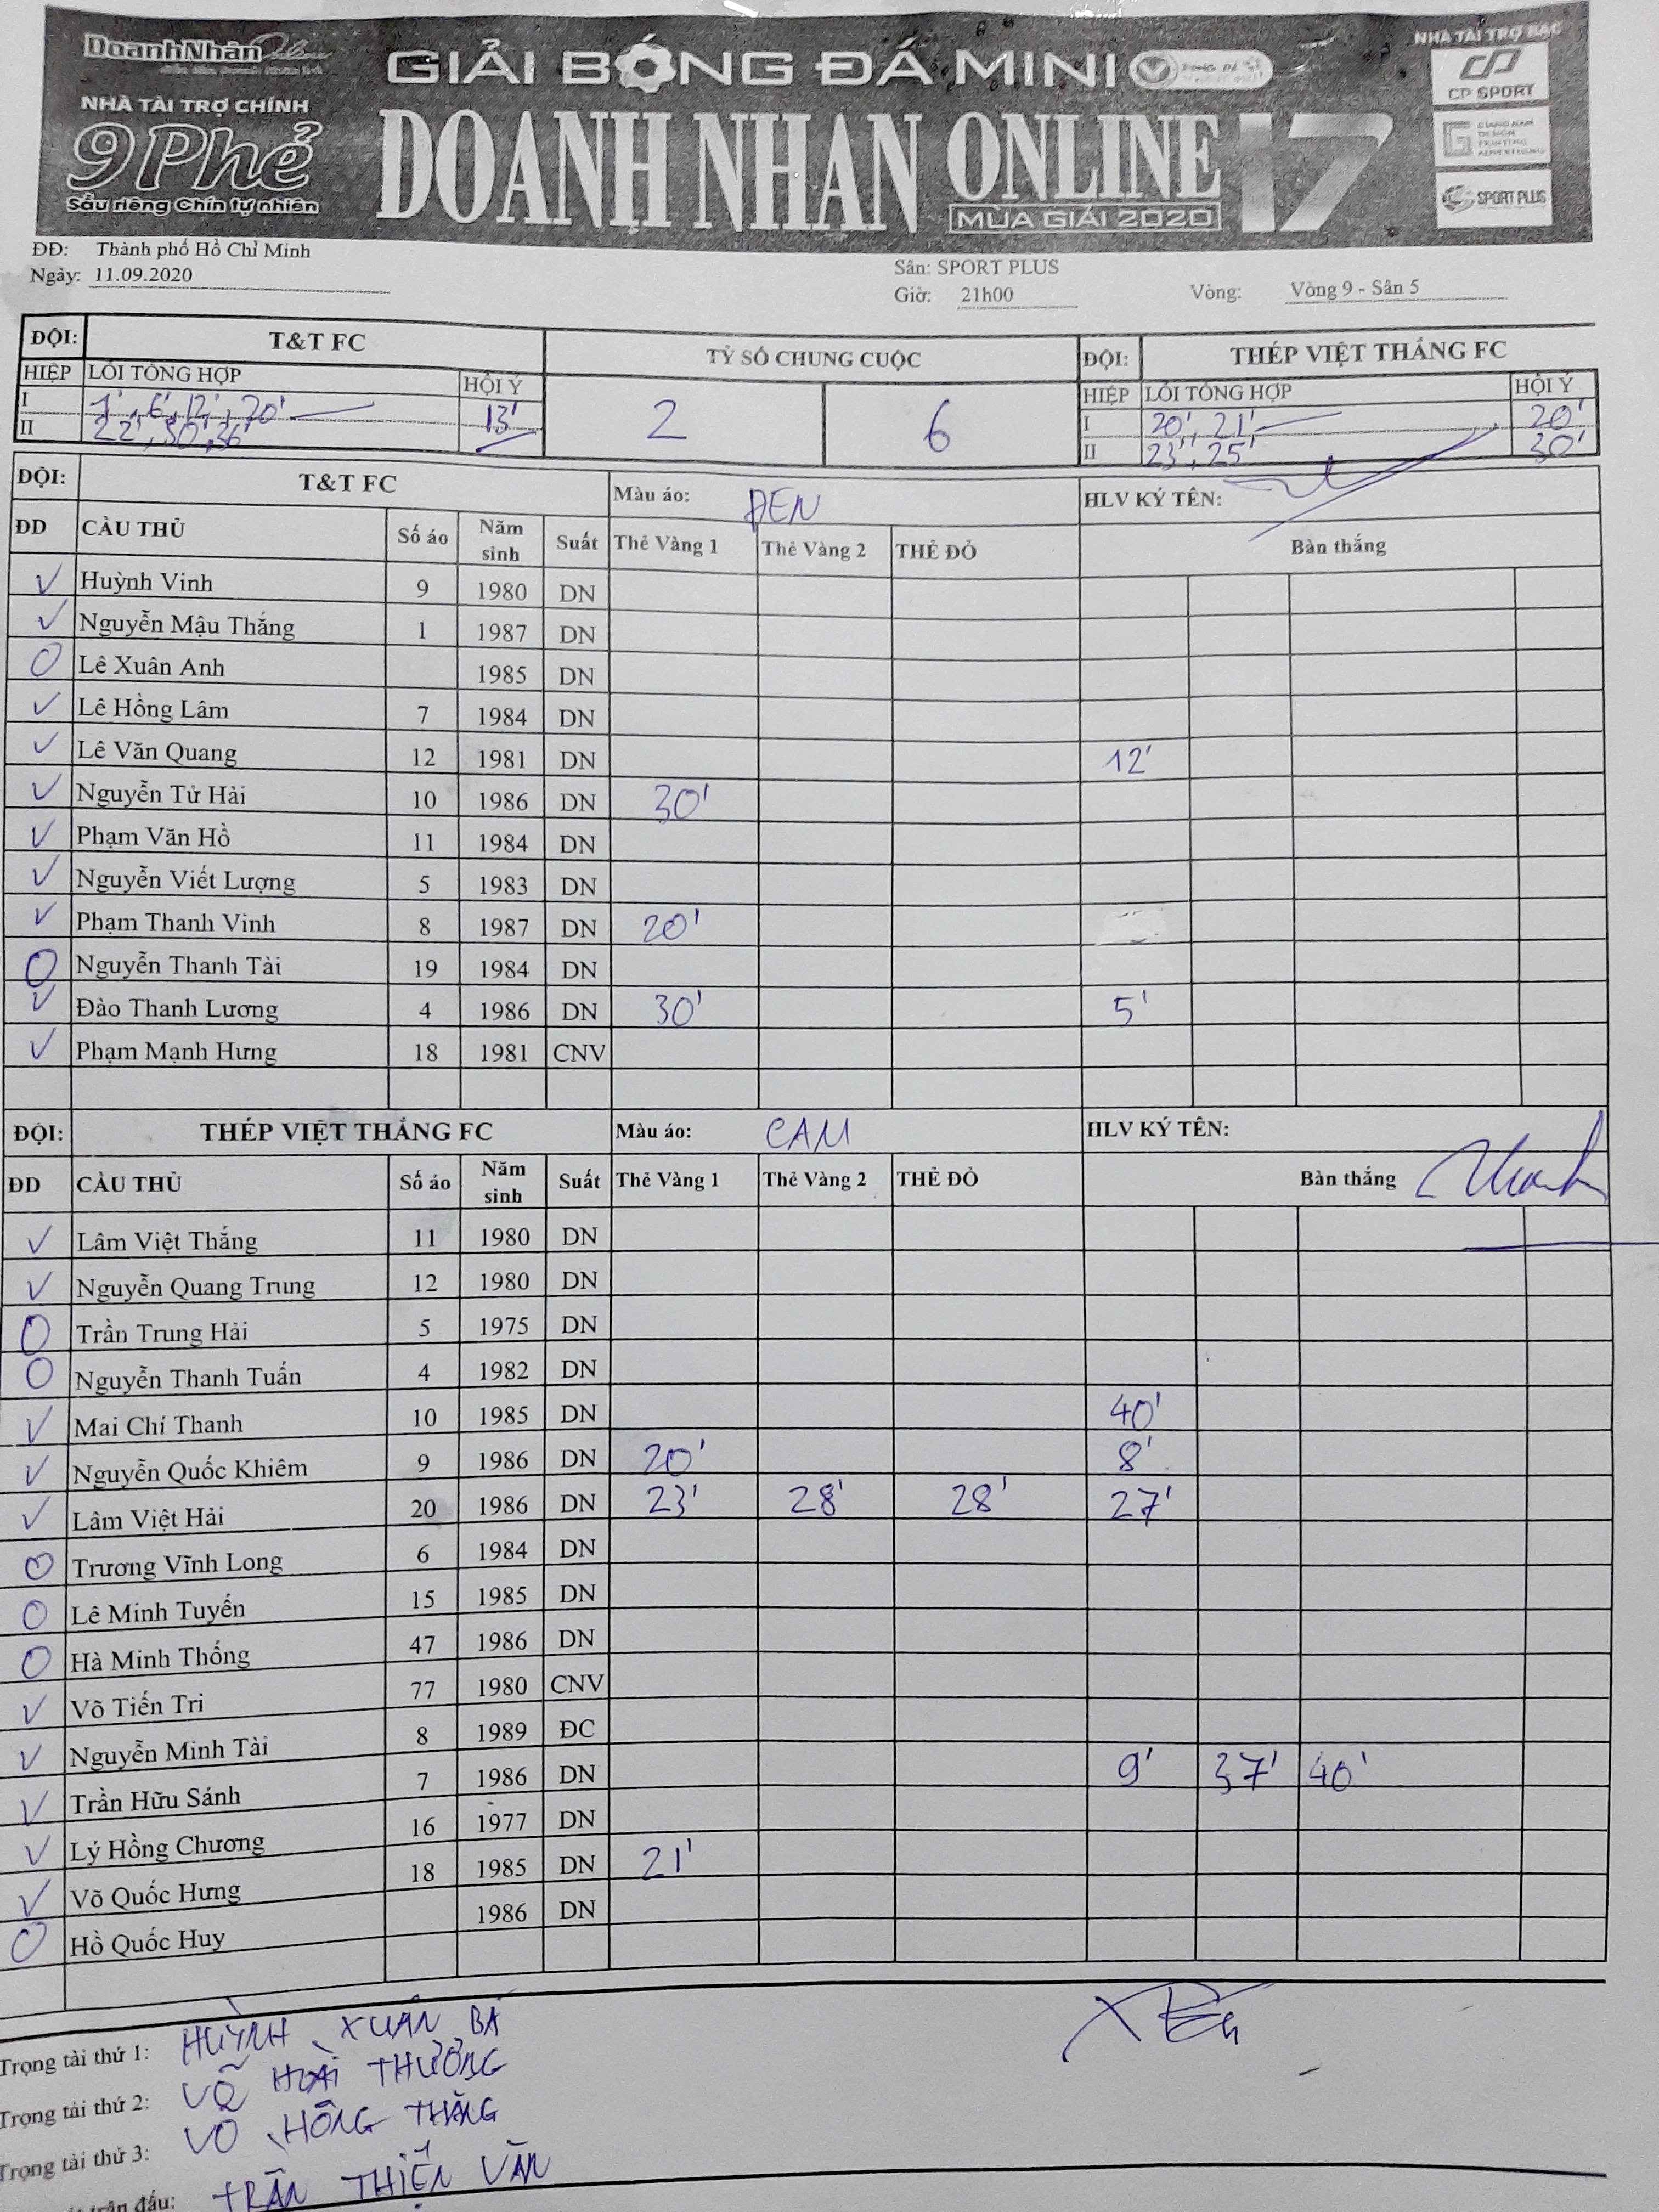 DoanhNhân Online
NHÀ TÀI TRỢ CHÍNH
9 Phẻ
Sầu riêng Chín tự nhiên
GIẢI BÓNG ĐÁ MINI
DOANH NHÂN ONLINE 17
MÙA GIẢI 2020
NHÀ TÀI TRỢ BẠC
CP SPORT
SPORT PLUS
ĐĐ: Thành phố Hồ Chí Minh
Ngày: 11.09.2020
Sân: SPORT PLUS
Giờ: 21h00 Vòng: Vòng 9 - Sân 5
ĐỘI: T&T FC TỶ SỐ CHUNG CUỘC ĐỘI: THÉP VIỆT THẮNG FC
HIỆP LỖI TỔNG HỢP HỘI Ý 2 6 HIỆP LỖI TỔNG HỢP HỘI Ý
I 1', 6', 12', 20' 13' I 20', 21' 20'
II 22', 30', 36' II 23', 25' 30'
ĐỘI: T&T FC Màu áo: ĐEN HLV KÝ TÊN:
ĐD CẦU THỦ Số áo Năm sinh Suất Thẻ Vàng 1 Thẻ Vàng 2 THẺ ĐỎ Bàn thắng
✓ Huỳnh Vinh 9 1980 DN
✓ Nguyễn Mậu Thắng 1 1987 DN
O Lê Xuân Anh 1985 DN
✓ Lê Hồng Lâm 7 1984 DN
✓ Lê Văn Quang 12 1981 DN 12'
✓ Nguyễn Tử Hải 10 1986 DN 30'
✓ Phạm Văn Hồ 11 1984 DN
✓ Nguyễn Viết Lượng 5 1983 DN
✓ Phạm Thanh Vinh 8 1987 DN 20'
O Nguyễn Thanh Tài 19 1984 DN
✓ Đào Thanh Lương 4 1986 DN 30' 5'
✓ Phạm Mạnh Hưng 18 1981 CNV
ĐỘI: THÉP VIỆT THẮNG FC Màu áo: CAM HLV KÝ TÊN:
ĐD CẦU THỦ Số áo Năm sinh Suất Thẻ Vàng 1 Thẻ Vàng 2 THẺ ĐỎ Bàn thắng
✓ Lâm Việt Thắng 11 1980 DN
✓ Nguyễn Quang Trung 12 1980 DN
O Trần Trung Hải 5 1975 DN
O Nguyễn Thanh Tuấn 4 1982 DN
✓ Mai Chí Thanh 10 1985 DN 40'
✓ Nguyễn Quốc Khiêm 9 1986 DN 20' 8'
✓ Lâm Việt Hải 20 1986 DN 23' 28' 28' 27'
O Trương Vĩnh Long 6 1984 DN
O Lê Minh Tuyến 15 1985 DN
O Hà Minh Thống 47 1986 DN
✓ Võ Tiến Trí 77 1980 CNV
✓ Nguyễn Minh Tài 8 1989 ĐC
✓ Trần Hữu Sánh 7 1986 DN 9' 37' 40'
✓ Lý Hồng Chương 16 1977 DN
✓ Võ Quốc Hưng 18 1985 DN 21'
O Hồ Quốc Huy 1986 DN
Trọng tài thứ 1: HUỲNH XUÂN BÁ
Trọng tài thứ 2: VÕ HOÀI THƯƠNG
Trọng tài thứ 3: VÕ HỒNG THẮNG
trận đấu: TRẦN THIỆN VĂN